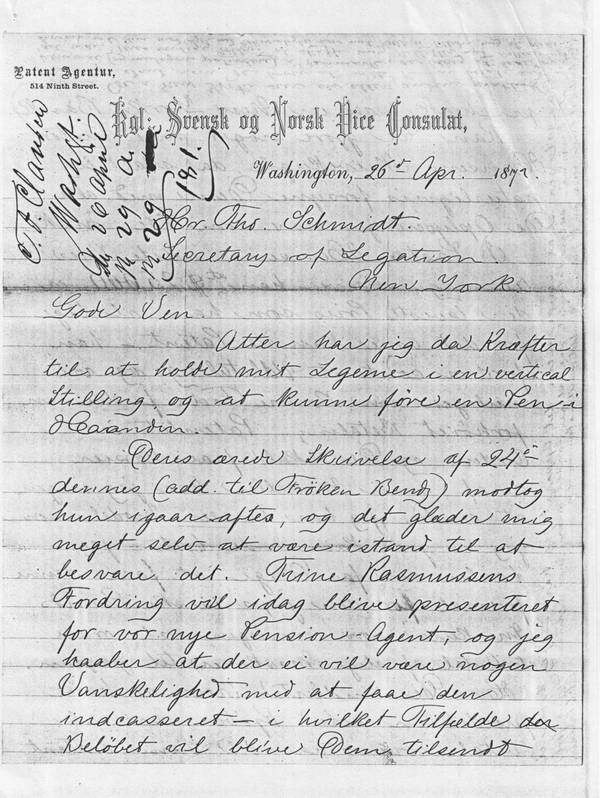 Patent Agentur,
514 Ninth Street.
Kgl: Svensk og Norsk Vice Consulat,
Washington, 26d Apr. 1872.
C. F. Clausen
Washgt.
26 April
29 a.
29
181.
Hr. Tho. Schmidt.
Secretary of Legation
New York.
Gode Ven
Atter har jeg da Kræfter
til at holde mit Legeme i en vertical
Stilling og at kunne føre en Pen i
Haanden.
Deres ærede Skrivelse af 24de
dennes (add. til Fröken Bendz) modtog
hun igaar aftes, og det glæder mig
meget selv at være istand til at
besvare det. Trine Rasmussens
Fordring vil idag blive presenteret
for vor nye Pension-Agent, og jeg
haaber at der ei vil være nogen
Vanskelighed med at faae den
indcasseret — i hvilket Tilfælde
Beløbet vil blive Dem tilsendt